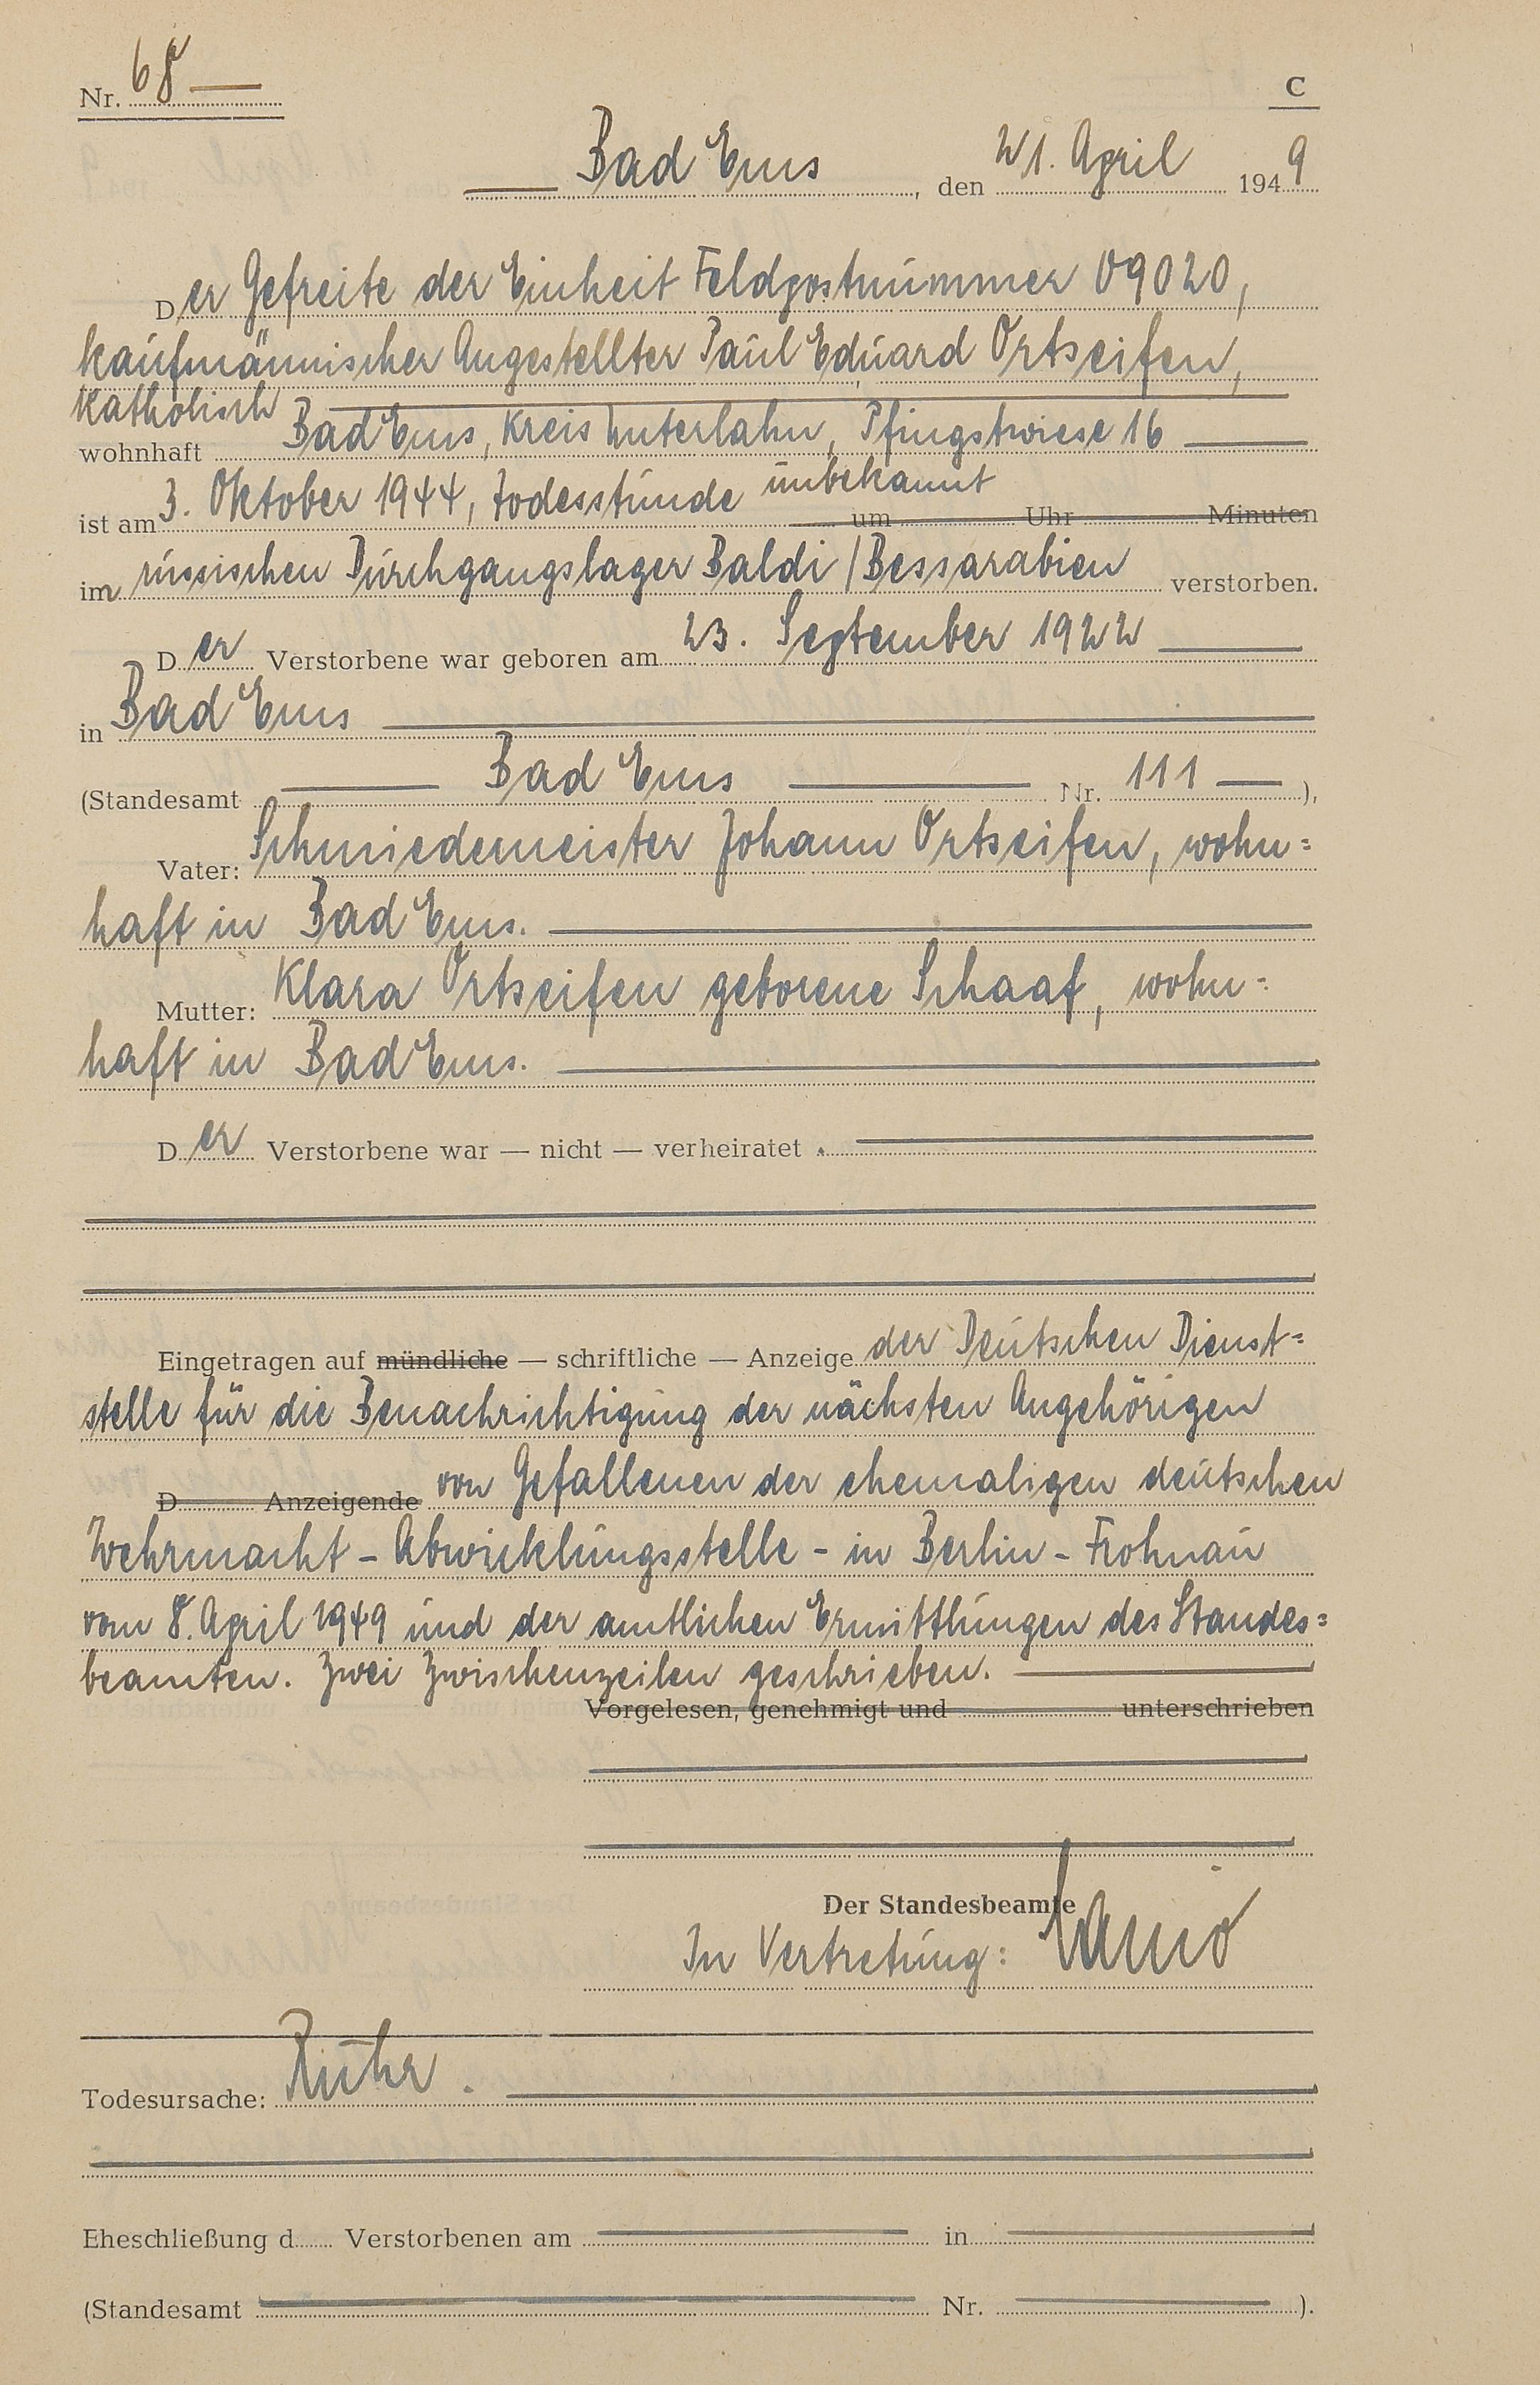 Nr. 68 —
C
Bad Ems, den 21. April 1949
Der Gefreite der Einheit Feldpostnummer 09020,
kaufmännischer Angestellter Paul Eduard Ortseifen,
katholisch
wohnhaft Bad Ems, Kreis Unterlahn, Pfingstwiese 16 —
ist am 3. Oktober 1944, Todesstunde unbekannt um Uhr Minuten
im russischen Durchgangslager Baldi/Bessarabien verstorben.
Der Verstorbene war geboren am 23. September 1922 —
in Bad Ems —
(Standesamt — Bad Ems — Nr. 111 —),
Vater: Schmiedemeister Johann Ortseifen, wohn=
haft in Bad Ems. —
Mutter: Klara Ortseifen geborene Schaaf, wohn=
haft in Bad Ems. —
Der Verstorbene war — nicht — verheiratet . —
Eingetragen auf mündliche — schriftliche — Anzeige der Deutschen Dienst=
stelle für die Benachrichtigung der nächsten Angehörigen
D Anzeigende von Gefallenen der ehemaligen deutschen
Wehrmacht - Abwicklungsstelle - in Berlin - Frohnau
vom 8. April 1949 und der amtlichen Ermittlungen des Standes=
beamten. Zwei Zwischenzeilen geschrieben. —
Vorgelesen, genehmigt und unterschrieben
Der Standesbeamte
In Vertretung:
Todesursache: Ruhr. —
Eheschließung d Verstorbenen am — in —
(Standesamt — Nr. — ).